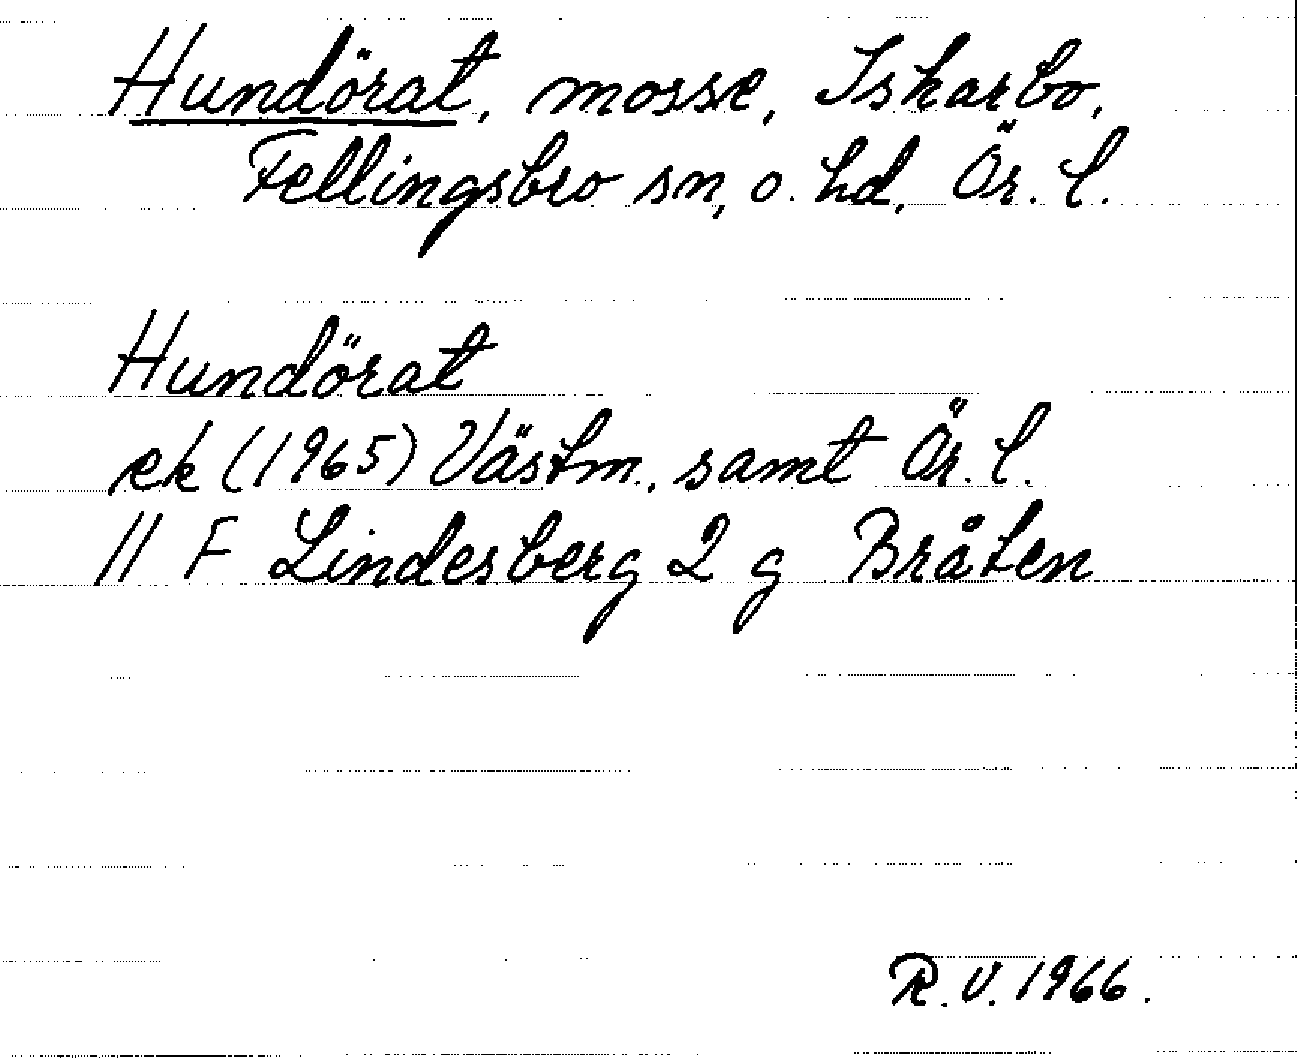 Hundörat, mosse, Iskarbo,
Fellingsbro sn, o. hd, Ör. l.
Hundörat
ek (1965) Västm. samt Ör. l.
11 F Lindesberg 2 g Bråten
R. V. 1966.